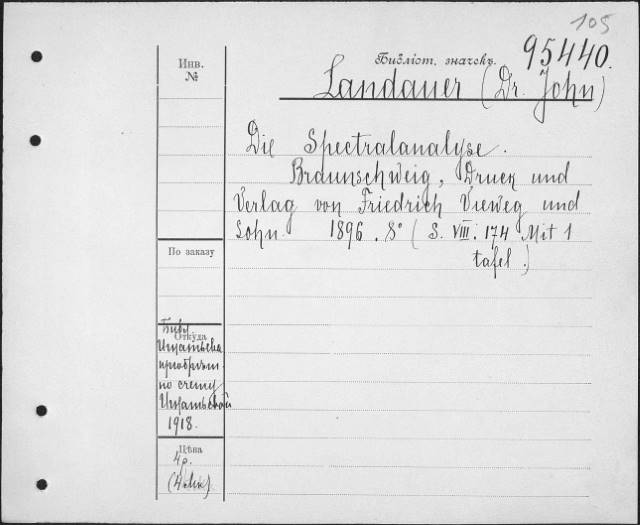 105
Инв.
№
Библіот. значекъ. 95440.
Landauer (Dr. John)
Die Spectralanalyse.
Braunschweig, Druck und
Verlag von Friedrich Vieweg und
Sohn. 1896. 8° (S. VIII. 174 Mit 1
tafel.)
По заказу
Откуда
Библ
Игнатьева
приобрѣт.
по счету
1918.
Цѣна
4р.
(4 Мк)